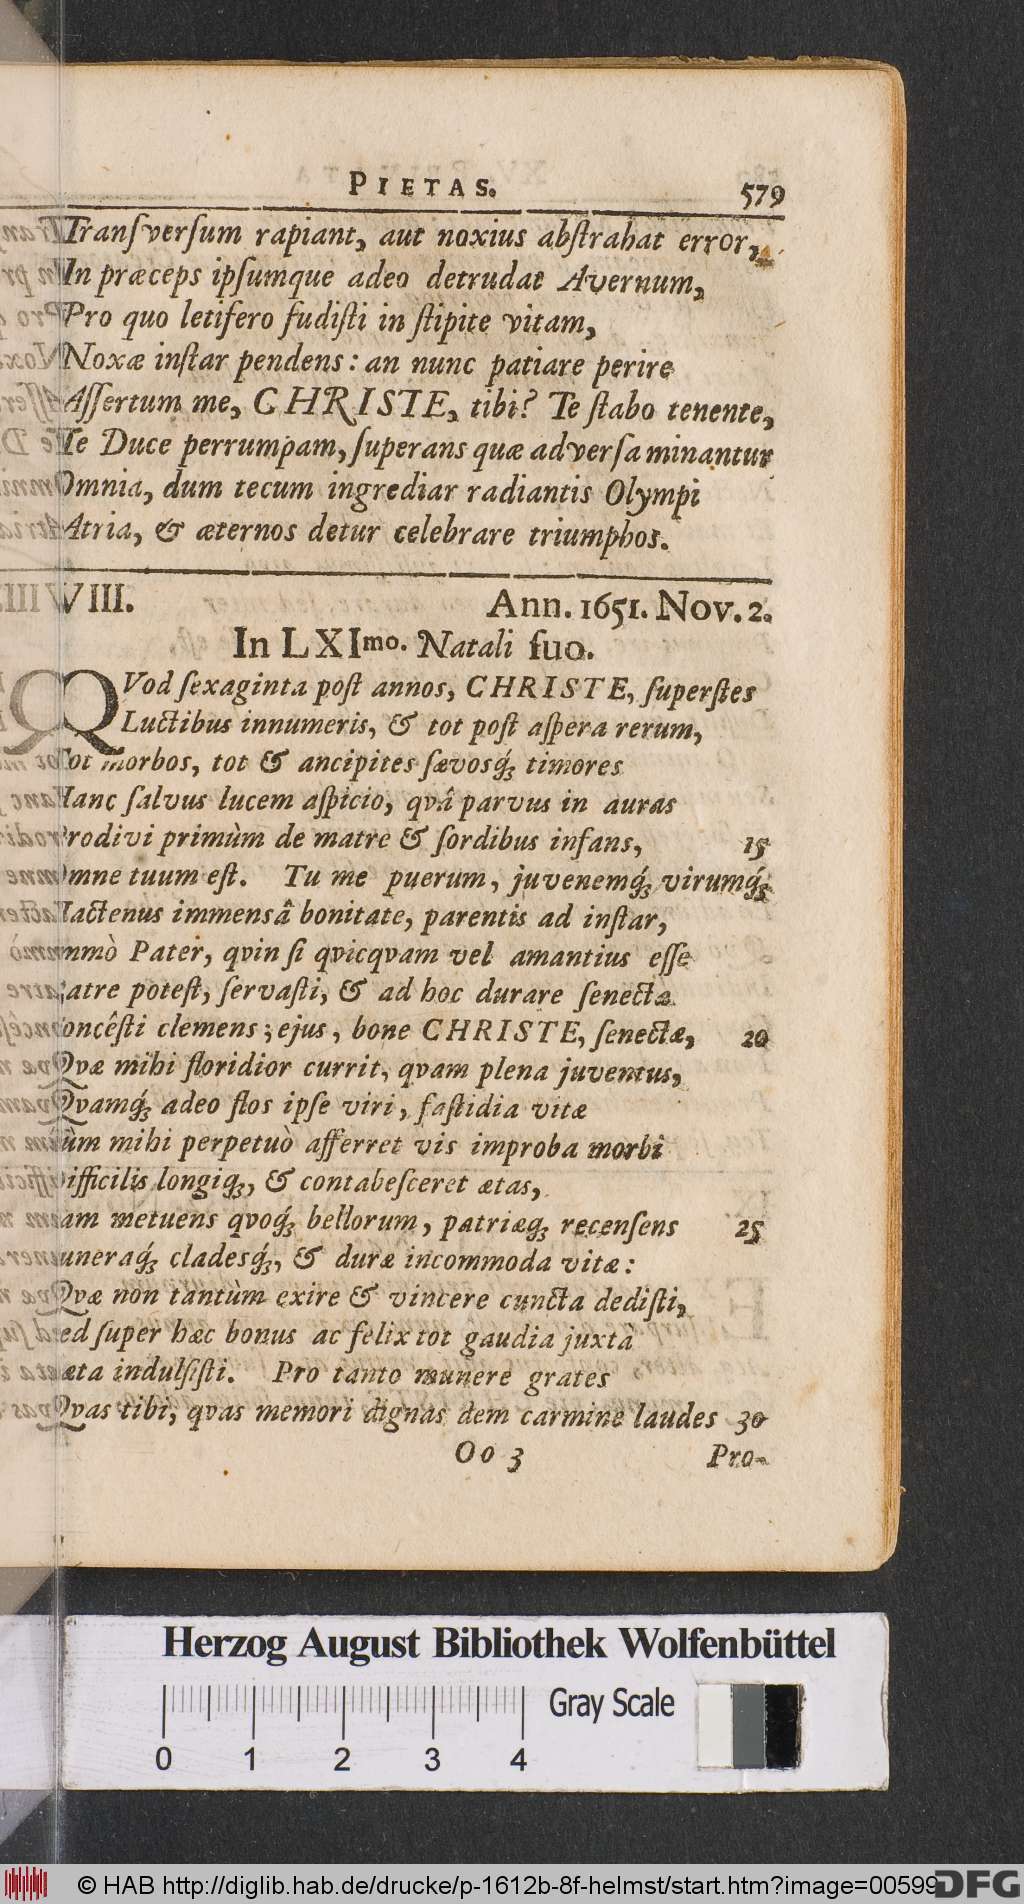 PIETAS. 579
Tranſverſum rapiant, aut noxius abſtrahat error,
In præceps ipſumque adeo detrudat Avernum,
Pro quo letifero fudiſti in ſtipite vitam,
Noxæ inſtar pendens: an nunc patiare perire
Aſſertum me, CHRISTE, tibi? Te ſtabo tenente,
Te Duce perrumpam, ſuperans quæ adverſa minantur
Omnia, dum tecum ingrediar radiantis Olympi
Atria, & æternos detur celebrare triumphos.
VIII. Ann. 1651. Nov. 2.
In LXImo. Natali ſuo.
QVod ſexaginta poſt annos, CHRISTE, ſuperſtes
Luctibus innumeris, & tot poſt aſpera rerum,
Tot morbos, tot & ancipites ſævosq́; timores
Hanc ſalvus lucem aſpicio, qvâ parvus in auras
Prodivi primùm de matre & ſordibus infans, 15
Omne tuum eſt. Tu me puerum, juvenemq́; virumq́;
Hactenus immensâ bonitate, parentis ad inſtar,
mmò Pater, qvin ſi qvicqvam vel amantius eſſe
atre poteſt, ſervaſti, & ad hoc durare ſenectæ
concêſti clemens; ejus, bone CHRISTE, ſenectæ, 20
Qvæ mihi floridior currit, qvam plena juventus,
Qvamq́; adeo flos ipſe viri, faſtidia vitæ
ùm mihi perpetuò afferret vis improba morbi
ifficilis longiq;, & contabeſceret ætas,
am metuens qvoq́; bellorum, patriæq; recenſens 25
uneraq́; cladesq́;, & duræ incommoda vitæ:
Qvæ non tantùm exire & vincere cuncta dediſti,
ed ſuper hæc bonus ac felix tot gaudia juxtà
æta indulſiſti. Pro tanto munere grates
Qvas tibi, qvas memori dignas dem carmine laudes 30
Oo 3 Pro-
Herzog August Bibliothek Wolfenbüttel
Gray Scale
0 1 2 3 4
© HAB http://diglib.hab.de/drucke/p-1612b-8f-helmst/start.htm?image=00599
DFG